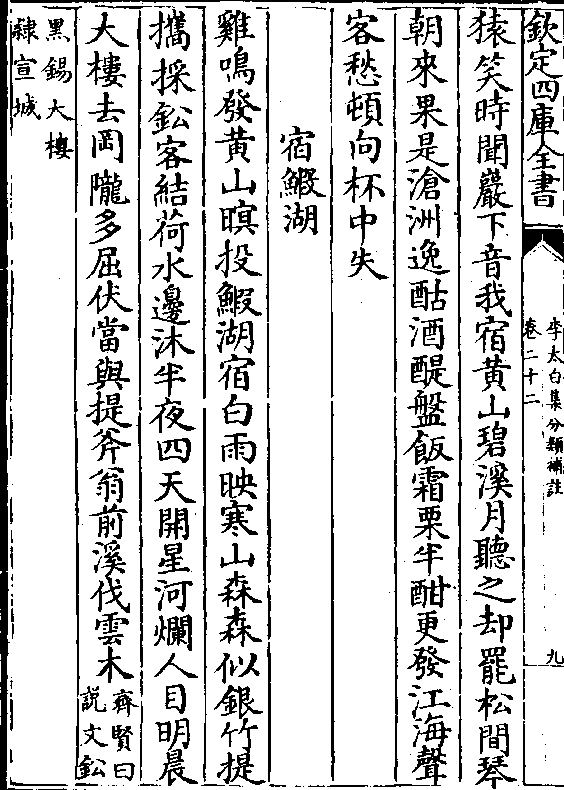 欽定四庫全書
李太白集分類補註
卷二十二
九
猿笑時聞巖下音我宿黃山碧溪月聽之却罷松間琴
朝來果是滄洲逸酤酒醍盤飯霜栗半酣更發江海聲
客愁頓向杯中失
宿鰕湖
雞鳴發黃山暝投鰕湖宿白雨映寒山森森似銀竹提
攜採鈆客結荷水邊沐半夜四天開星河爛人目明晨
大樓去岡隴多屈伏當與提斧翁前溪伐雲木
齊賢曰
説文鈆
黒錫大樓
禄宣城